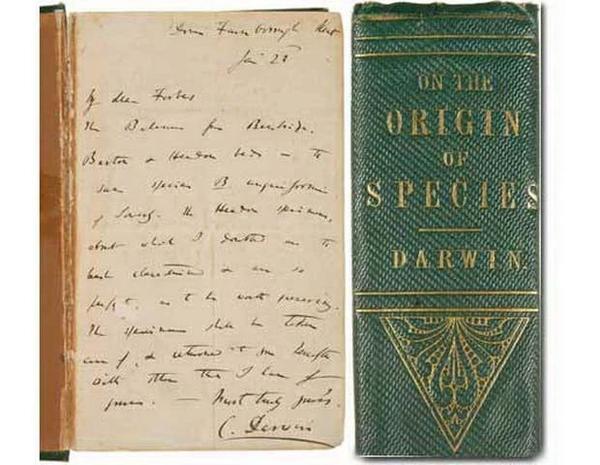 Down Farnborough Kent
Jan
My dear Forbes
The Balanus from Bembridge,
Barton & Headon beds is the
same species B unguiformis
of Sowerby. The Headon specimens,
about which I doubted
are so
perfect, as to be worth preserving.
The specimens shall be taken
care of, & returned to you together
with those that I have of
yours. — Most truly yours,
C. Darwin
ON THE
ORIGIN
OF
SPECIES
DARWIN